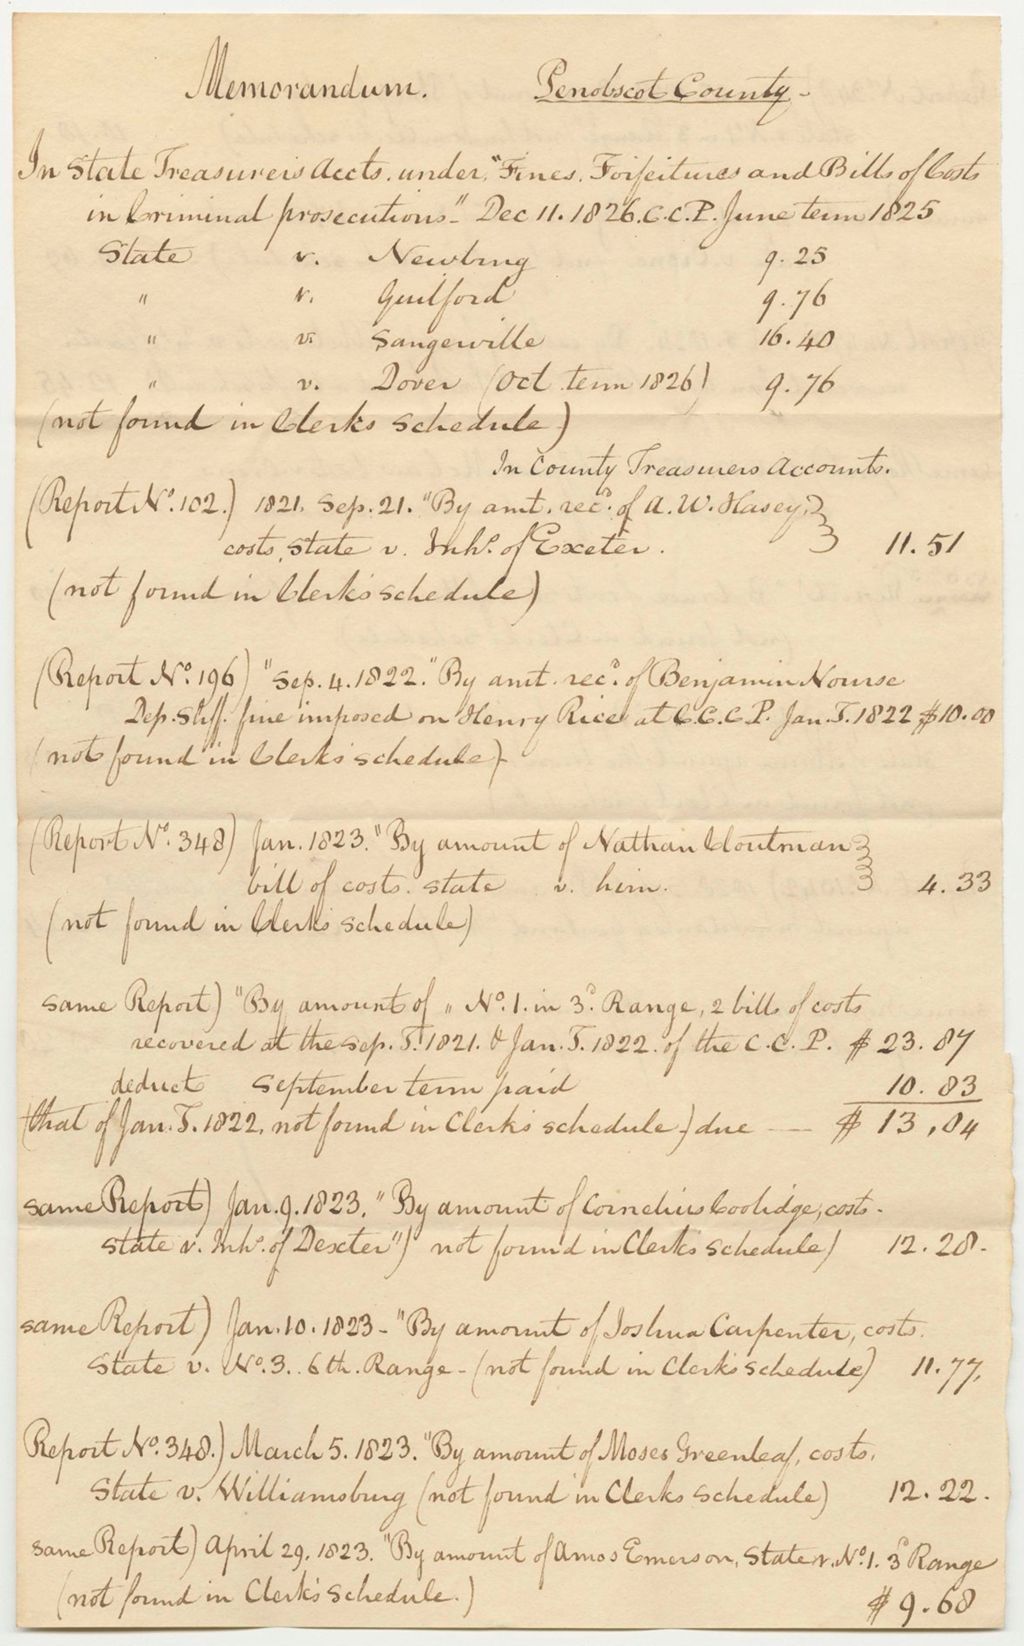 Memorandum. Penobscot County -
In State Treasurer's Accts. under "Fines, Forfeitures and Bills of Costs
in Criminal prosecutions." Dec 11. 1826. C.C.P. June term 1825
State v. Newburg 9.25
" v. Guilford 9.76
" v. Sangerville 16.40
" v. Dover (Oct. term 1826) 9.76
(not found in Clerk's schedule)
In County Treasurers Accounts.
(Report No. 102.) 1821. Sep. 21. "By amt. recd. of A. W. Hasey,
costs, State v. Inhs. of Exeter. 11.51
(not found in Clerk's schedule)
(Report No. 196) "Sep. 4. 1822." By amt. recd. of Benjamin Nourse
Dep. Shff. fine imposed on Henry Rice at C.C.C.P. Jan. T. 1822 $10.00
(not found in Clerk's schedule)
(Report No. 348) Jan. 1823. "By amount of Nathan Cloutman
bill of costs. State v. him. 4.33
(not found in Clerk's schedule)
same Report) "By amount of " No. 1. in 3d. Range, 2 bills of costs
recovered at the Sep. T. 1821. & Jan. T. 1822. of the C.C.P. $23.87
deduct September term paid 10.83
(that of Jan. T. 1822. not found in Clerk's schedule) due — $13.04
same Report) Jan. 9. 1823. "By amount of Cornelius Coolidge, costs.
State v. Inhs. of Dexter") not found in Clerk's schedule) 12.28.
same Report) Jan. 10. 1823 - "By amount of Joshua Carpenter, costs.
State v. No. 3. 6th. Range - (not found in Clerk's schedule) 11.77,
Report No. 348.) March 5. 1823. "By amount of Moses Greenleaf, costs.
State v. Williamsburg (not found in Clerks schedule) 12.22.
same Report) April 29. 1823. "By amount of Amos Emerson, State v. No. 1. 3d Range
(not found in Clerk's schedule.) $9.68